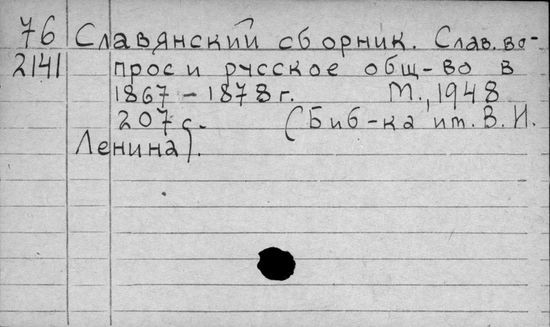 76 Славянский сборник. Слав. во-
2141 прос и русское общ-во в
1867 – 1878 г. М., 1948
207 с. (Биб-ка им. В. И.
Ленина).